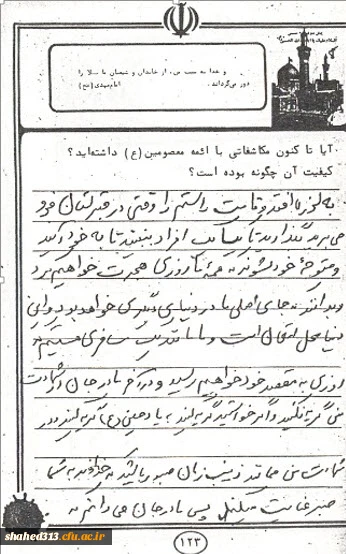 و خدا به سبب من، از خاندان و شیعیان ما بلا را
دور می‌گرداند.
امام مهدی (عج)
آیا تا کنون مکاشفاتی با ائمه معصومین (ع) داشته‌اید؟
کیفیت آن چگونه بوده است؟
به لرزه افتد و قامت راستم را وقتی در قبر لتان فرو
می‌برید بگذارید تا یکایک افراد ببینید تا به خود آیند
و متوجه خود شوند که همه ما روزی هجرت خواهیم کرد
و بدانند که جای اصلی ما در دنیای دیگری خواهد بود و این
دنیا محل انتقال است و ما مانند یک مسافری هستیم که
روزی به مقصد خود خواهیم رسید و در آخر مادر جان از شهادت
من گریه نکنید و اگر خواستید گریه کنید به یاد حسین (ع) گریه کنید و در
شهادت من همانند زینب زمان صبور باشید که خداوند به شما
صبر عنایت میکند پس مادر جان می‌دانم که
۱۲۳
shahed313.cfu.ac.ir